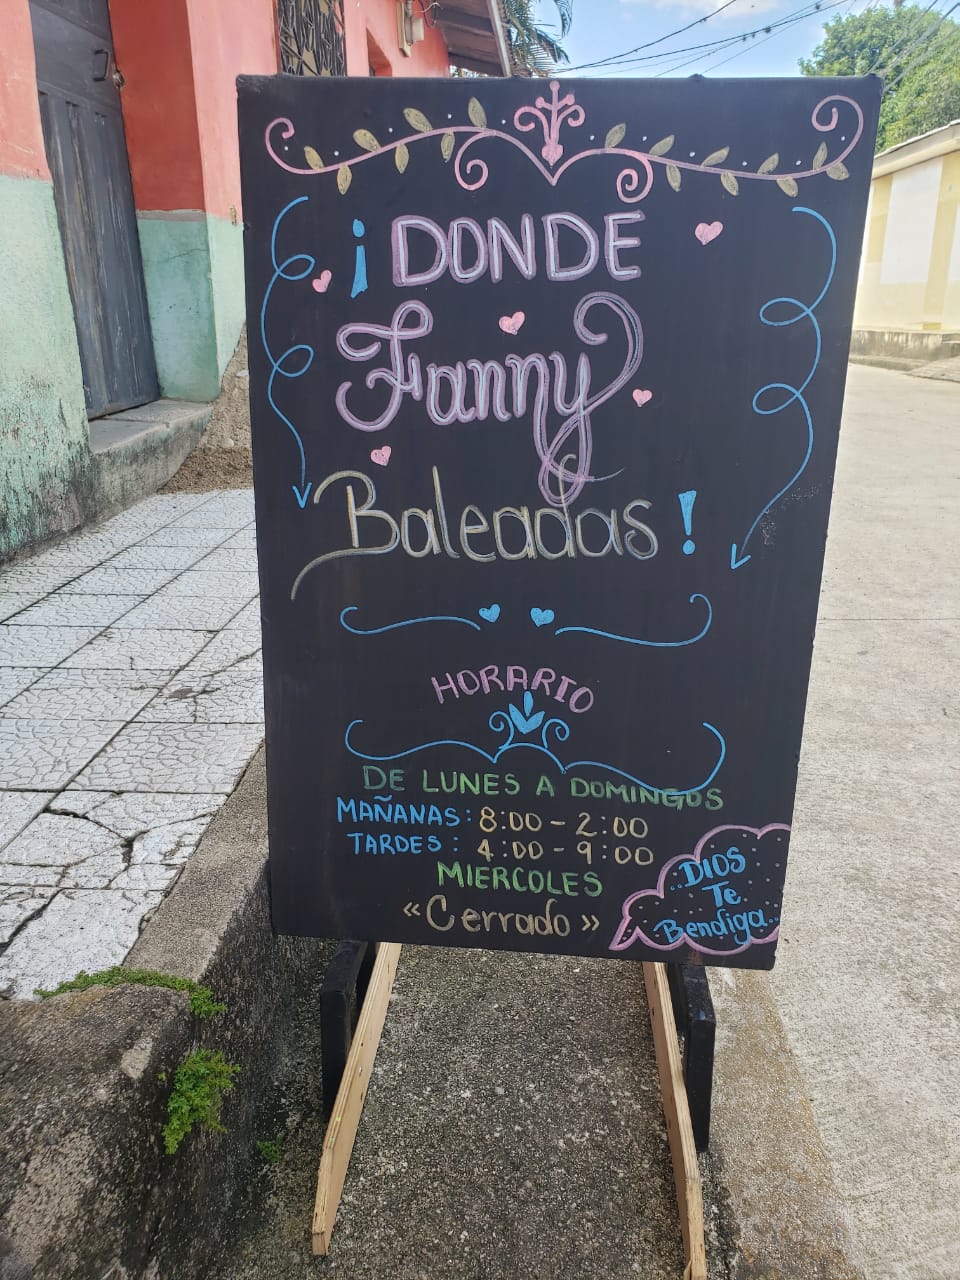 ¡DONDE
Fanny
Baleadas!
HORARIO
DE LUNES A DOMINGOS
MAÑANAS: 8:00 - 2:00
TARDES: 4:00 - 9:00
MIERCOLES
«Cerrado»
DIOS
Te
Bendiga..